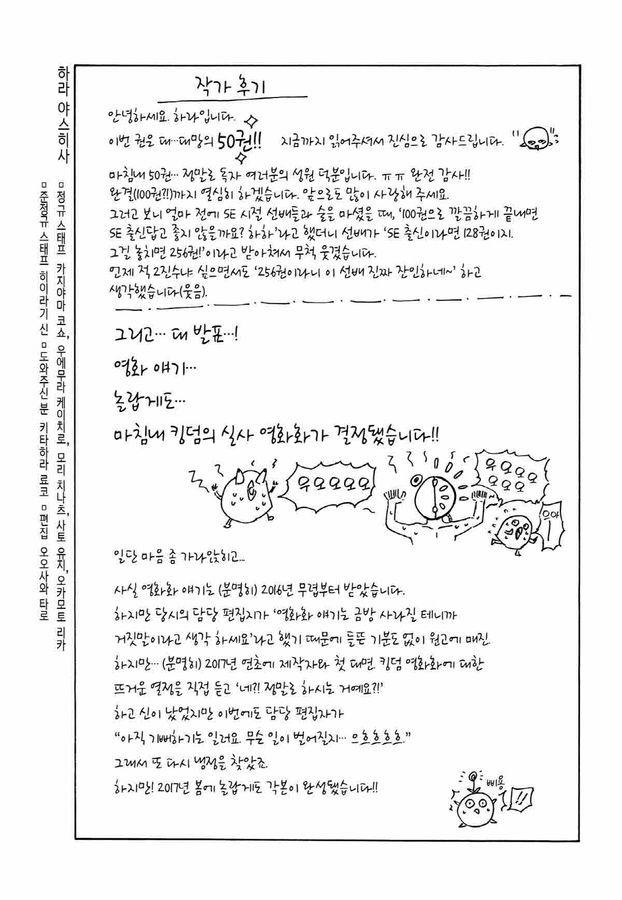 작가 후기
안녕하세요. 하라입니다.
이번 권은 대…대망의 50권!! 지금까지 읽어주셔서 진심으로 감사드립니다.
마침내 50권… 정말로 독자 여러분의 성원 덕분입니다. ㅠㅠ 완전 감사!!
완결(100권?!)까지 열심히 하겠습니다. 앞으로도 많이 사랑해 주세요.
그러고 보니 얼마 전에 SE 시절 선배들과 술을 마셨을 때, '100권으로 깔끔하게 끝내면
SE 출신답고 좋지 않을까요? 하하'라고 했더니 선배가 'SE 출신이라면 128권이지.
그걸 놓치면 256권!'이라고 받아쳐서 무척 웃겼습니다.
언제 적 2진수냐 싶으면서도 '256권이라니 이 선배 진짜 잔인하네~' 하고
생각했습니다(웃음).
그리고… 대 발표…!
영화 얘기…
놀랍게도…
마침내 킹덤의 실사 영화화가 결정됐습니다!!
우오오오오
우오오오
오오오오
으아
일단 마음 좀 가라앉히고…
사실 영화화 얘기는 (분명히) 2016년 무렵부터 받았습니다.
하지만 당시의 담당 편집자가 '영화화 얘기는 금방 사라질 테니까
거짓말이라고 생각 하세요'라고 했기 때문에 들뜬 기분도 없이 원고에 매진.
하지만… (분명히) 2017년 연초에 제작자와 첫 대면. 킹덤 영화화에 대한
뜨거운 열정을 직접 듣고 '네?! 정말로 하시는 거예요?!'
하고 신이 났었지만 이번에도 담당 편집자가
"아직 기뻐하기는 일러요. 무슨 일이 벌어질지… 으흐흐흐흐."
그래서 또 다시 냉정을 찾았죠.
하지만! 2017년 봄에 놀랍게도 각본이 완성됐습니다!!
삐용
하라 야스히사
▫정규 스태프 카지야마 코쇼, 우에무라 케이치로, 모리 치나츠, 사토 유지, 오카모토 리카
▫준정규 스태프 히이라기 신 ▫도와주신 분 키타하라 료코 ▫편집 오오사와 타로